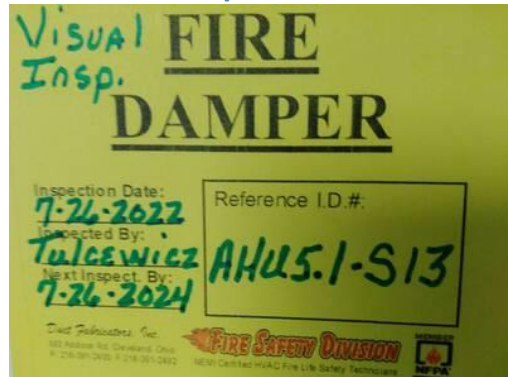 Visual
Insp.
FIRE
DAMPER
Inspection Date:
7-26-2022
Inspected By:
Tulcewicz
Next Inspect. By:
7-26-2024
Reference I.D.#:
AHU5.1-S13
Duct Fabricators, Inc.
Rd. Cleveland, Ohio
FIRE SAFETY DIVISION
NEMI Certified HVAC Fire Life Safety Technicians
MEMBER
NFPA